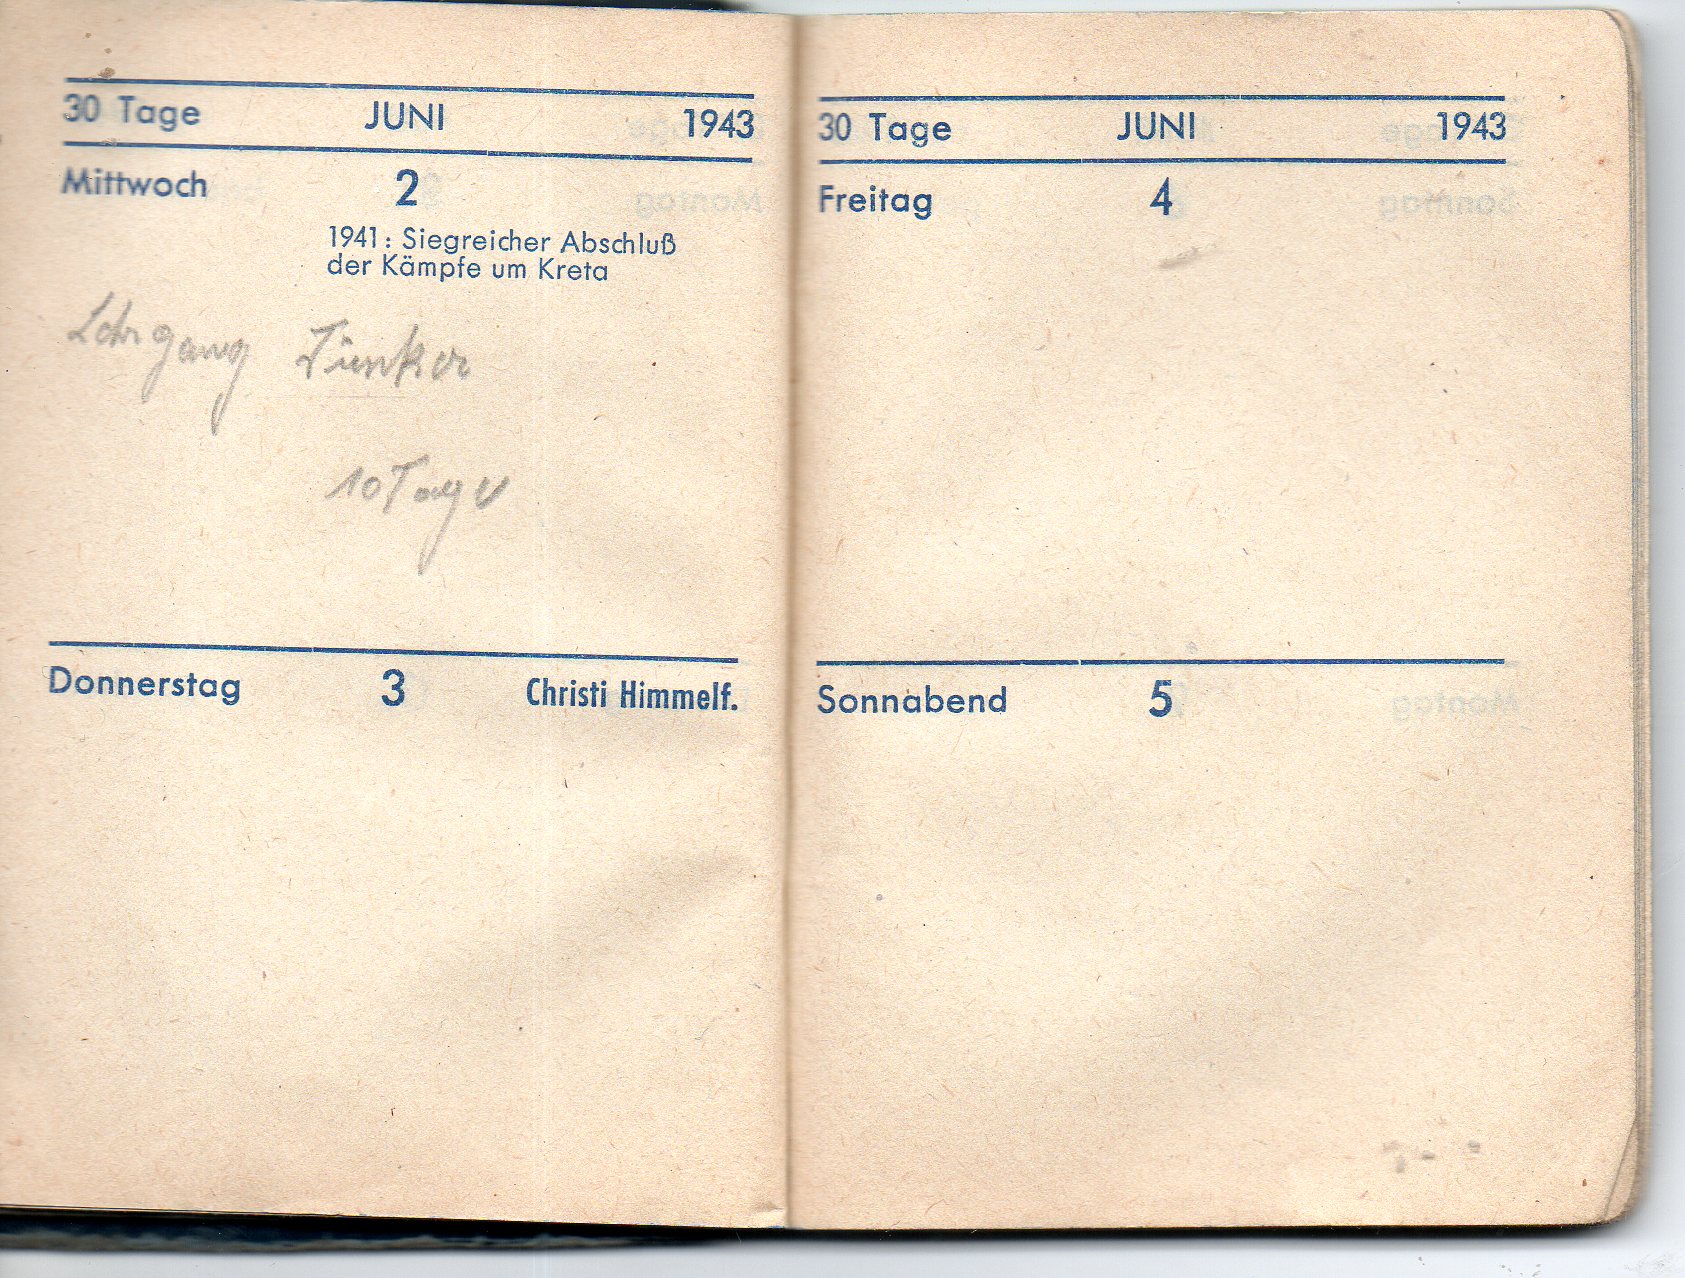 30 Tage JUNI 1943
Mittwoch 2
1941: Siegreicher Abschluß
der Kämpfe um Kreta
Lehrgang
10 Tage
Donnerstag 3 Christi Himmelf.
30 Tage JUNI 1943
Freitag 4
Sonnabend 5